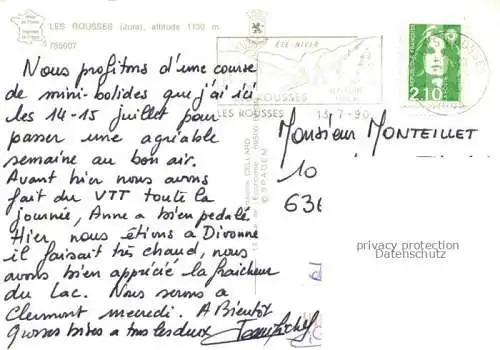 LES ROUSSES (Jura), altitude 1130 m.
785007
Nous profitons d'une course
de mini-bolides que j'ai ici
les 14-15 juillet pour
passer une agréable
semaine au bon air.
Avant hier nous avons
fait du VTT toute la
journée, Anne a bien pédalé.
Hier, nous étions à Divonne
il faisait très chaud, nous
avons bien apprécié la fraîcheur
du Lac. Nous serons à
Clermont mercredi. A Bientôt
grosses bises a tous les deux
ETE-HIVER
ROUSSES
LES ROUSSES 13-7-90
2,10
Monsieur MONTEILLET
10
63
© SPADEM
privacy protection
Datenschutz